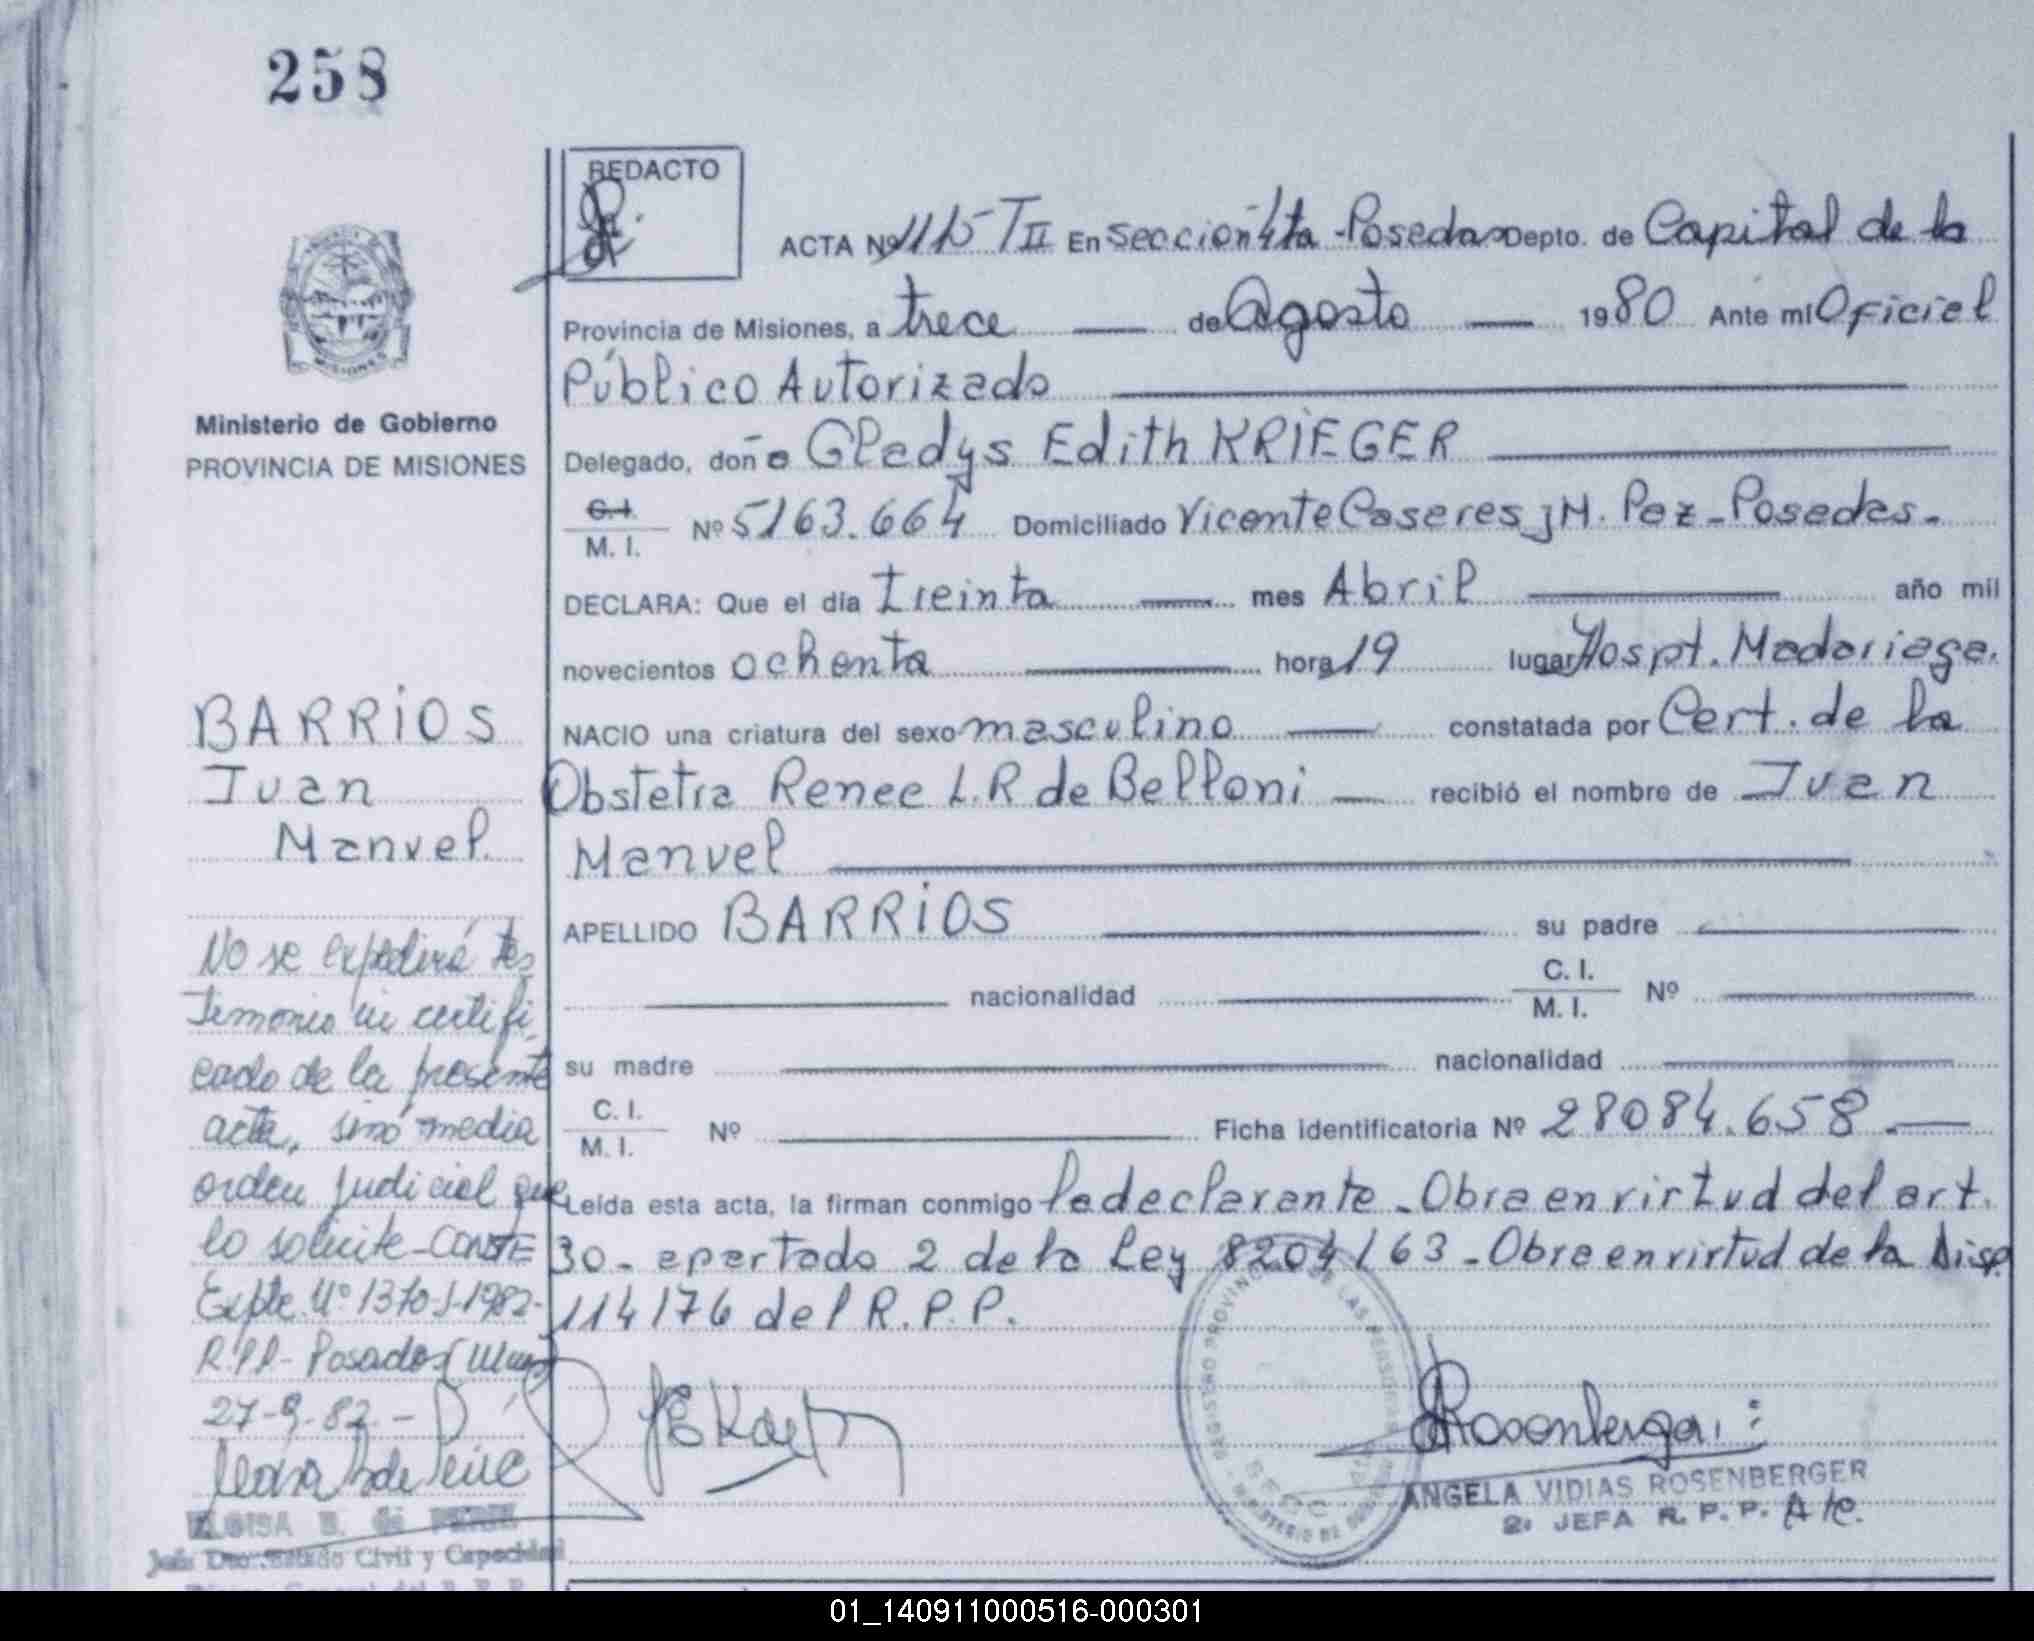 258
REDACTO
ACTA Nº 1115 T II En Sección 4ta - Posadas Depto. de Capital de la
Provincia de Misiones, a trece de Agosto 1980 Ante mi Oficial
Público Autorizado
Ministerio de Gobierno
PROVINCIA DE MISIONES
Delegado, doña Gladys Edith KRIEGER
C.I.
M. I. Nº 5163.664 Domiciliado Vicente Caseres y M. Paz - Posadas -
DECLARA: Que el día treinta mes Abril año mil
novecientos ochenta hora 19 lugar Hospt. Madariaga.
NACIO una criatura del sexo masculino constatada por Cert. de la
Obstetra Renee L. R de Belloni recibió el nombre de Juan
Manuel
APELLIDO BARRIOS su padre
nacionalidad C. I.
M. I. Nº
su madre nacionalidad
C. I.
M. I. Nº Ficha identificatoria Nº 28084.658.
Leída esta acta, la firman conmigo la declarante - Obra en virtud del art.
30 - apartado 2 de la Ley 8204/63 - Obra en virtud de la Disp.
114/76 del R. P. P.
BARRIOS
Juan
Manuel.
No se expedirá tes
timonio ni certifi
cado de la presente
acta, sinó media
orden judicial que
lo solicite - CONSTE
Expte. Nº 1370-J-1982-
R.P.P - Posadas (Mnes)
27-9-82. -
ELOISA B. de
Jefa Dto. Estado Civil y Capacidad
R. P. P.
REGISTRO PROVINCIAL DE LAS PERSONAS
MINISTERIO DE GOBIERNO
SECC
Rosenberger
ANGELA VIDIAS ROSENBERGER
2ª JEFA R. P. P. A/C.
01_140911000516-000301